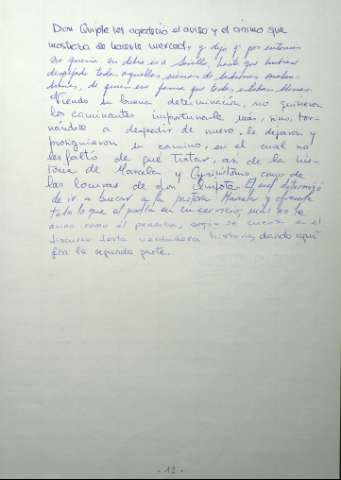 Don Quijote les agradeció el aviso y el ánimo que
mostraba de hacerle merced, y dijo q por entonces
no quería ni debía ir a Sevilla, hasta que hubiese
despejado todas aquellas sierras de ladrones malan-
drines, de quien era fama que todas estaban llenas.
Viendo su buena determinación, no quisieron
los caminantes importunarle más, sino, tor-
nándose a despedir de nuevo, le dejaron y
prosiguieron su camino, en el cual no
les faltó de qué tratar, así de la his-
toria de Marcela y Grisóstomo, como de
las locuras de don Quijote. El cual determinó
de ir a buscar a la pastora Marcela y ofrecerle
todo lo que él podía en su servicio; mas no le
avino como él pensaba, según se cuenta en el
discurso desta verdadera historia, dando aquí
fin la segunda parte.
- 12 -